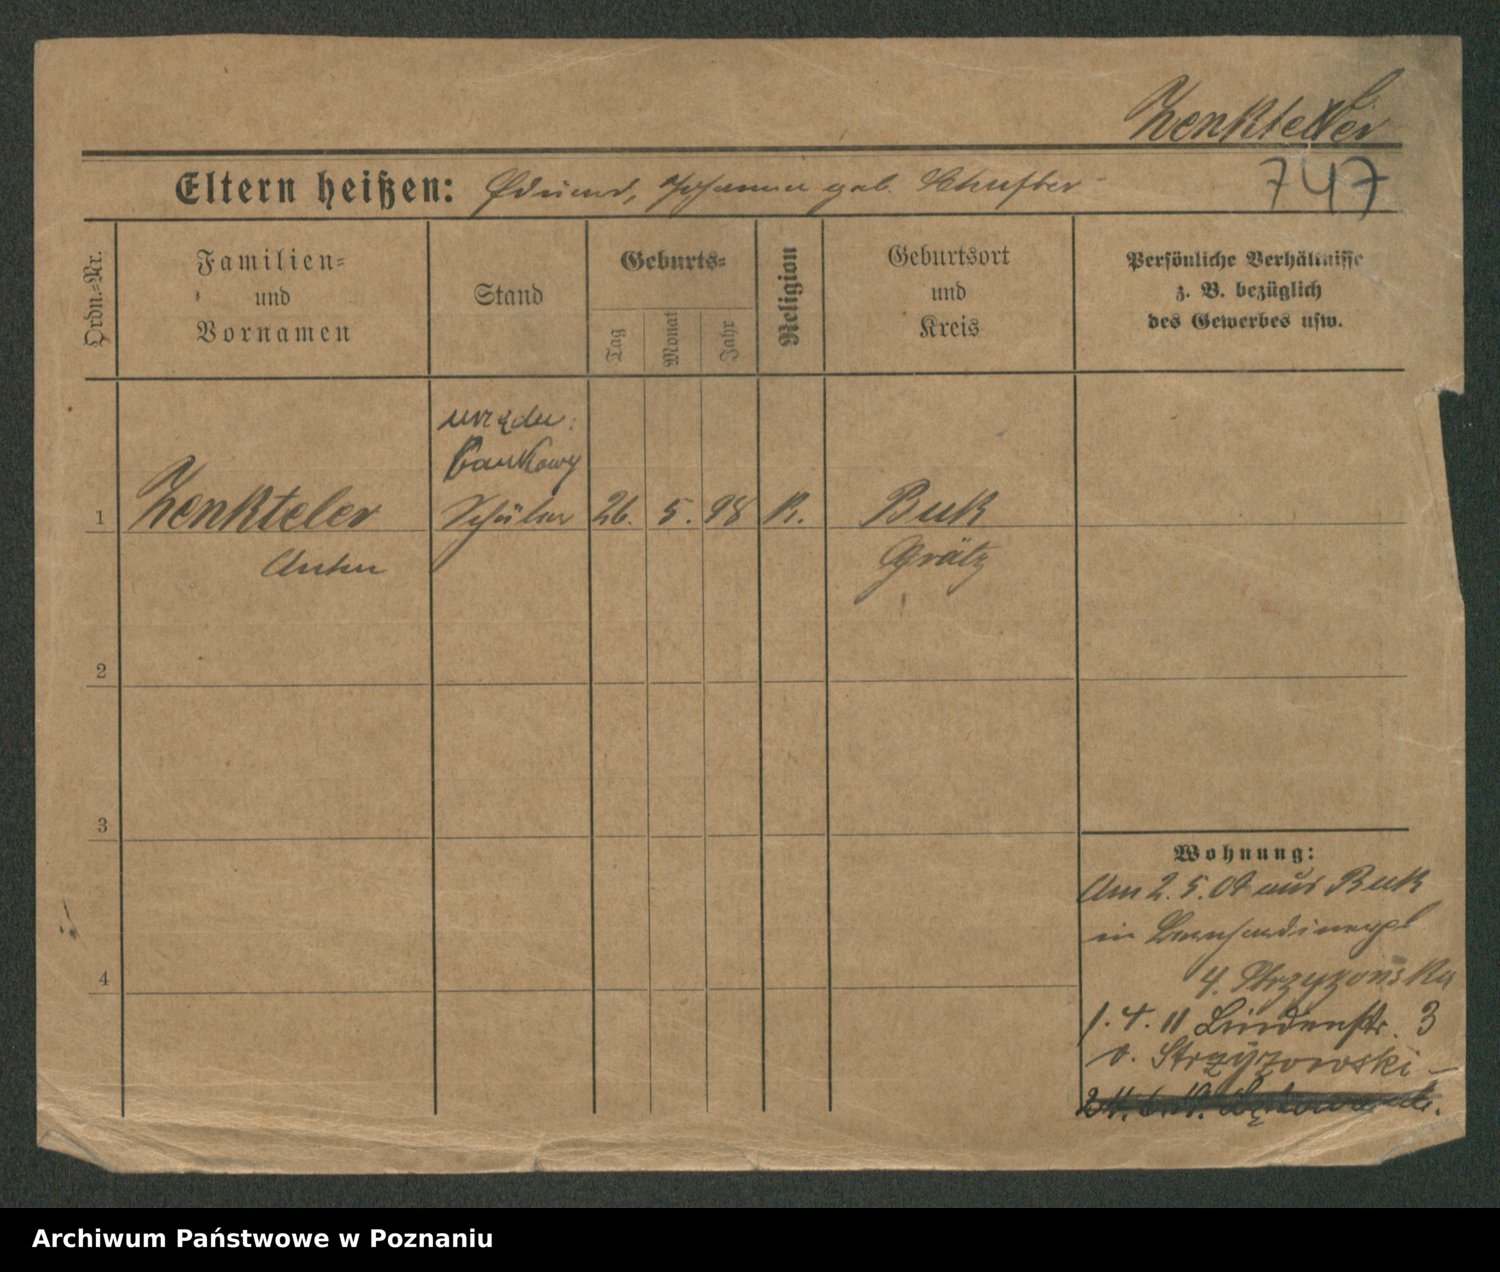 Zenkteler
747
Eltern heißen: Eduard, Johanna geb. Schuster
Ordn.-Nr.
Familien-
und
Vornamen
Stand
Geburts-
Tag
Monat
Jahr
Religion
Geburtsort
und
Kreis
Persönliche Verhältnisse
z. B. bezüglich
des Gewerbes usw.
urzędn.
bankowy
1 Zenkteler Schüler 26. 5. 98 R. Buk
Anton Grätz
2
3
4
Wohnung:
Am 2.5.09 aus Buk
in
4. Strzyzowska
1.4.11 Lindenstr. 3
b. Strzyzowski
Archiwum Państwowe w Poznaniu